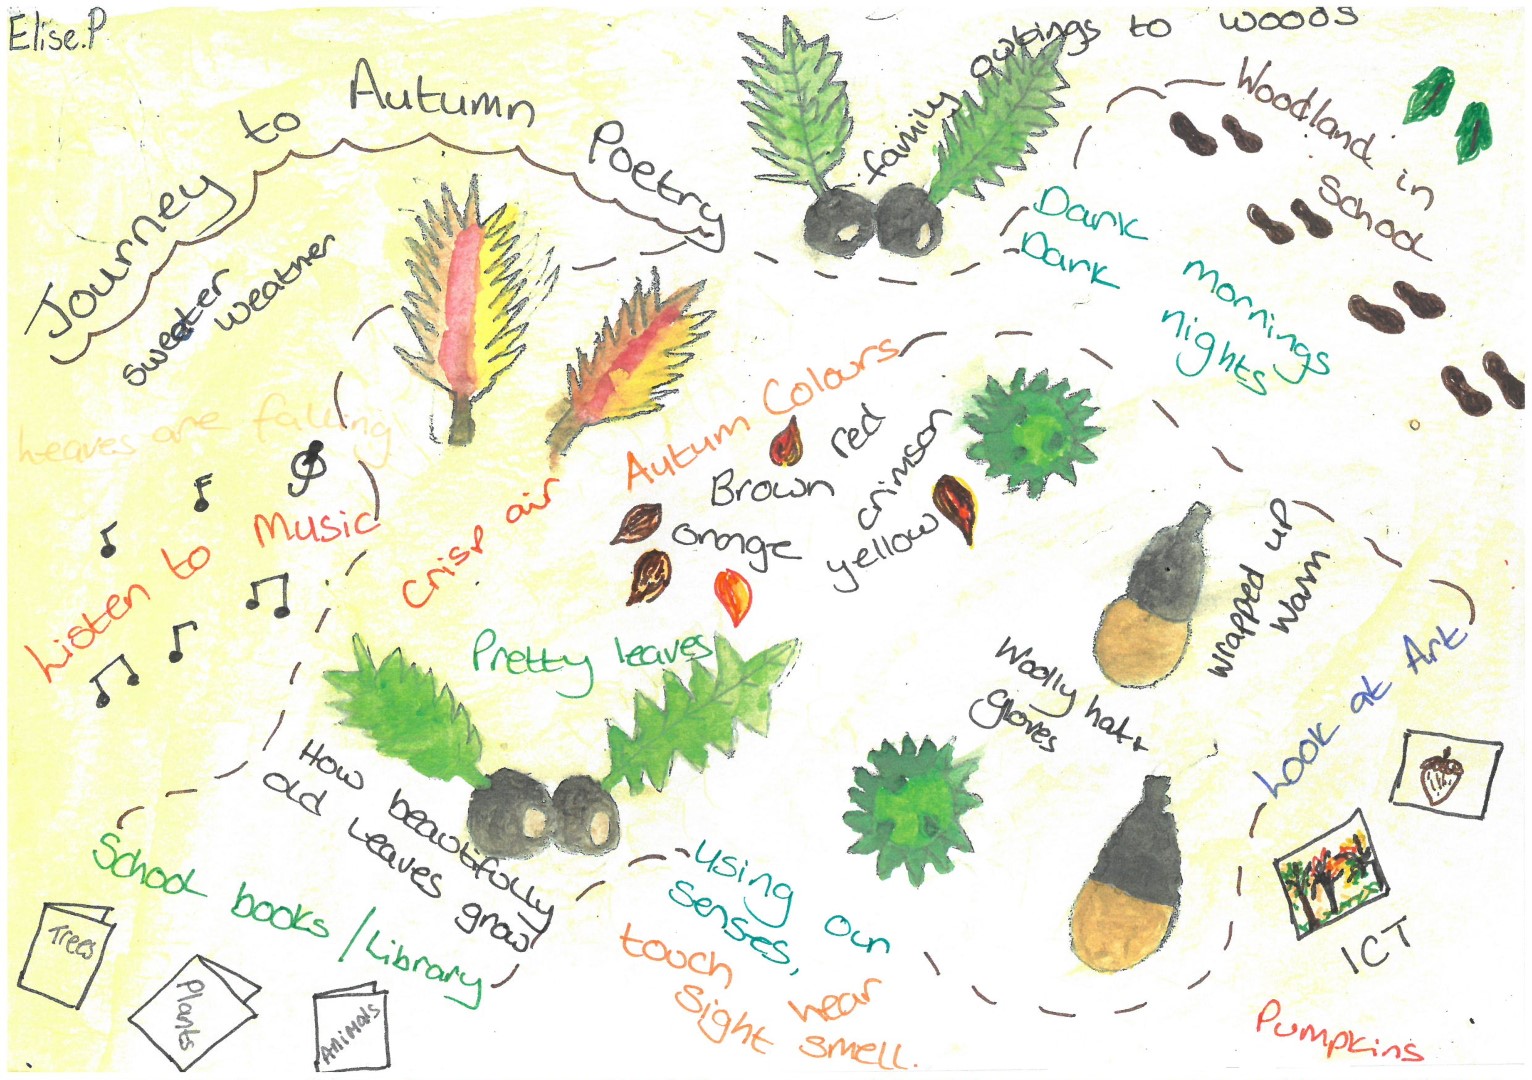 Elise.P
Journey to Autumn Poetry
family outings to woods
Woodland in
School
Dark mornings
Dark nights
sweater weather
Leaves are falling
Listen to Music
crisp air
Autumn Colours
red
Brown
crimson
orange
yellow
Pretty leaves
wrapped up
warm
Woolly hat +
gloves
Look at Art
How beautifully
old leaves grow
School books / Library
Trees
Plants
Animals
using our
senses,
touch hear
sight smell.
ICT
Pumpkins